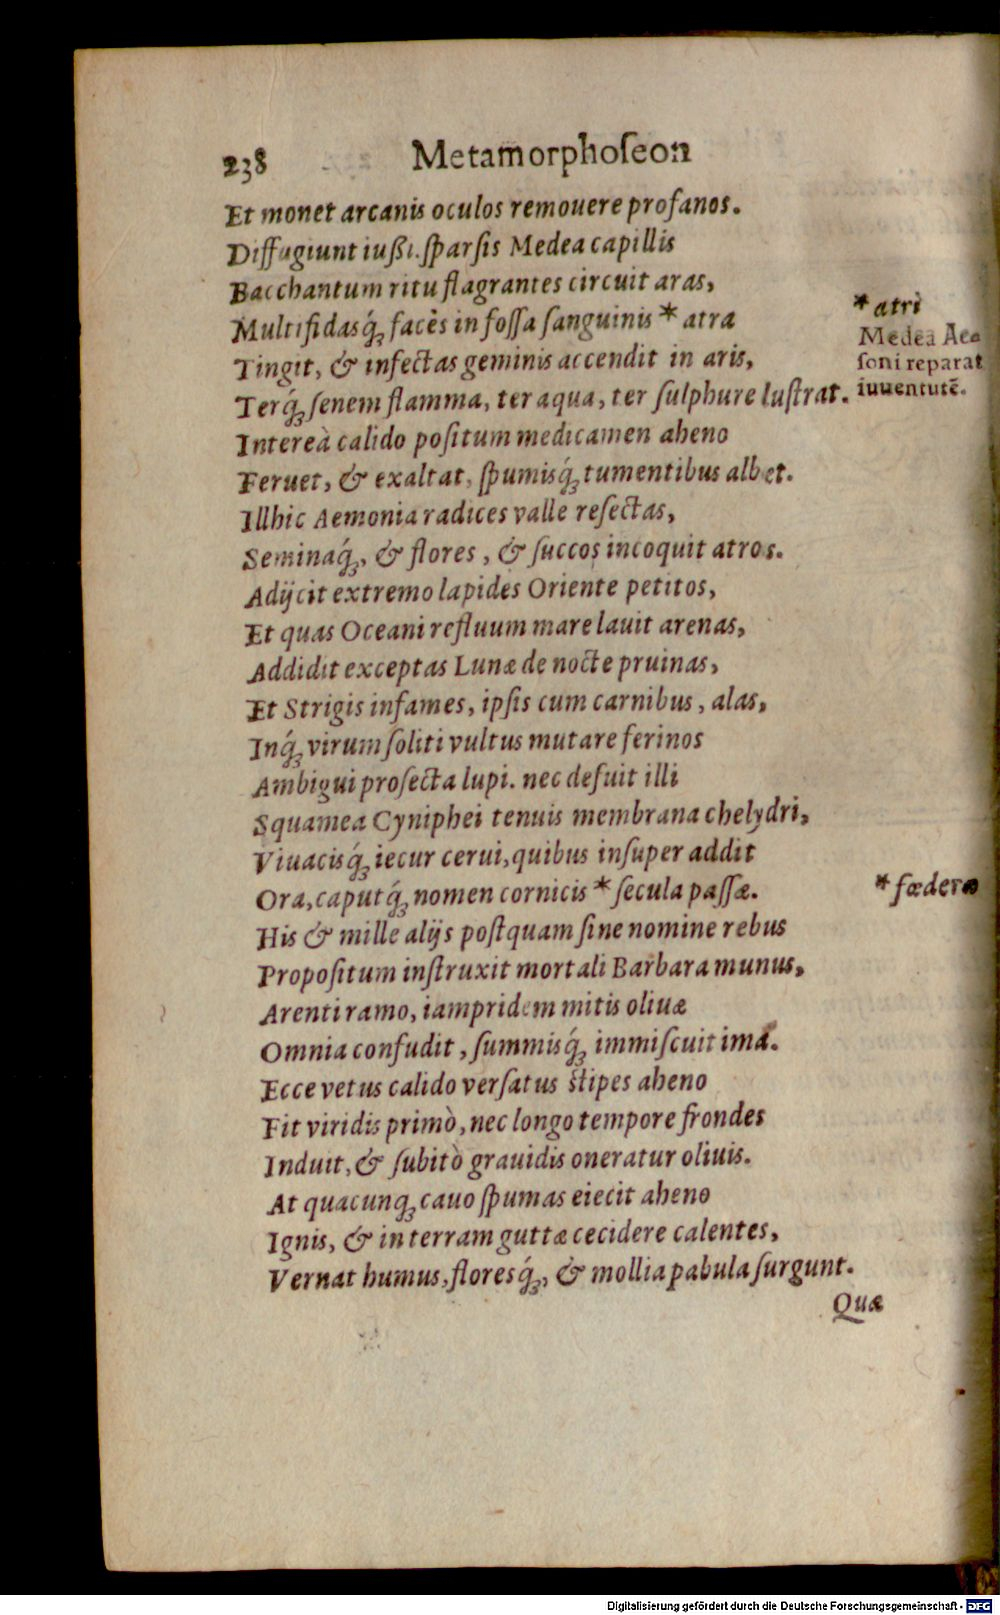 238 Metamorphoſeon
Et monet arcanis oculos remouere profanos.
Diffugiunt iußi. ſparſis Medea capillis
Bacchantum ritu flagrantes circuit aras,
Multifidasq́ꝫ facès in foſſa ſanguinis * atra
Tingit, & infectas geminis accendit in aris,
Terq́ꝫ ſenem flamma, ter aqua, ter ſulphure luſtrat.
Intereà calido poſitum medicamen aheno
Feruet, & exaltat, ſpumisq́ꝫ tumentibus albet.
Illhic Aemonia radices valle reſectas,
Seminaq́ꝫ, & flores, & ſuccos incoquit atros.
Adijcit extremo lapides Oriente petitos,
Et quas Oceani refluum mare lauit arenas,
Addidit exceptas Lunæ de nocte pruinas,
Et Strigis infames, ipſis cum carnibus, alas,
Inq́ꝫ virum ſoliti vultus mutare ferinos
Ambigui proſecta lupi. nec defuit illi
Squamea Cyniphei tenuis membrana chelydri,
Viuacisq́ꝫ iecur cerui, quibus inſuper addit
Ora, caputq́ꝫ nomen cornicis * ſecula paſſæ.
His & mille alijs poſtquam ſine nomine rebus
Propoſitum inſtruxit mortali Barbara munus,
Arenti ramo, iampridem mitis oliuæ
Omnia confudit, ſummisq́ꝫ immiſcuit ima.
Ecce vetus calido verſatus ſtipes aheno
Fit viridis primò, nec longo tempore frondes
Induit, & ſubitò grauidis oneratur oliuis.
At quacunqꝫ cauo ſpumas eiecit aheno
Ignis, & in terram guttæ cecidere calentes,
Vernat humus, floresq́ꝫ, & mollia pabula ſurgunt.
Quæ
* atri
Medea Aeſoni reparat
iuuentutē.
* fœdera
Digitalisierung gefördert durch die Deutsche Forschungsgemeinschaft - DFG